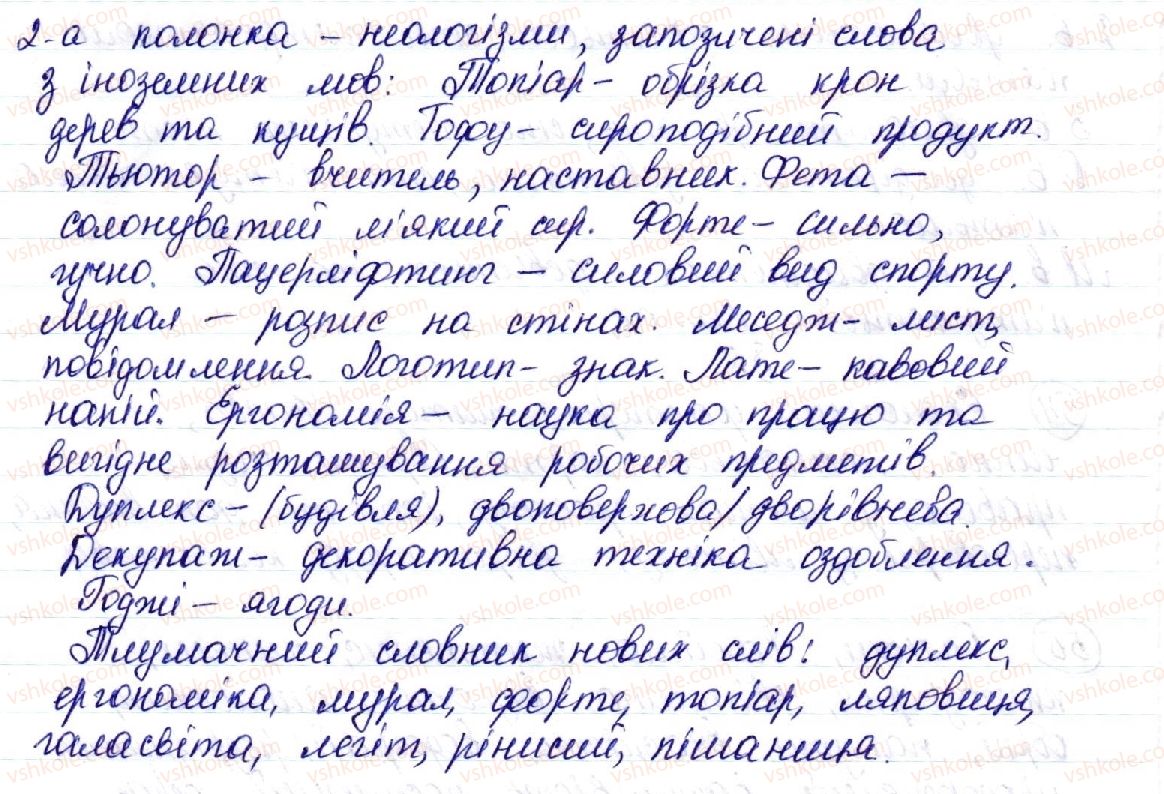 2-а полонка – неологізми, запозичені слова
з іноземних мов: Топіар – обрізка крон
дерев та кущів. Тофу – сироподібний продукт.
Тьютор – вчитель, наставник. Фета –
солонуватий м'який сир. Форте – сильно,
гучно. Пауерліфтинг – силовий вид спорту.
Мурал – розпис на стінах. Меседж – лист,
повідомлення. Логотип – знак. Лате – кавовий
напій. Ергономія – наука про працю та
вигідне розташування робочих предметів.
Дуплекс – (будівля), двоповерхова/дворівнева.
Декупаж – декоративна техніка оздоблення.
Годжі – ягоди.
Тлумачний словник нових слів: дуплекс,
ергономіка, мурал, форте, топіар, ляповиця,
галасвіта, легіт, рінисий, пішаниця.